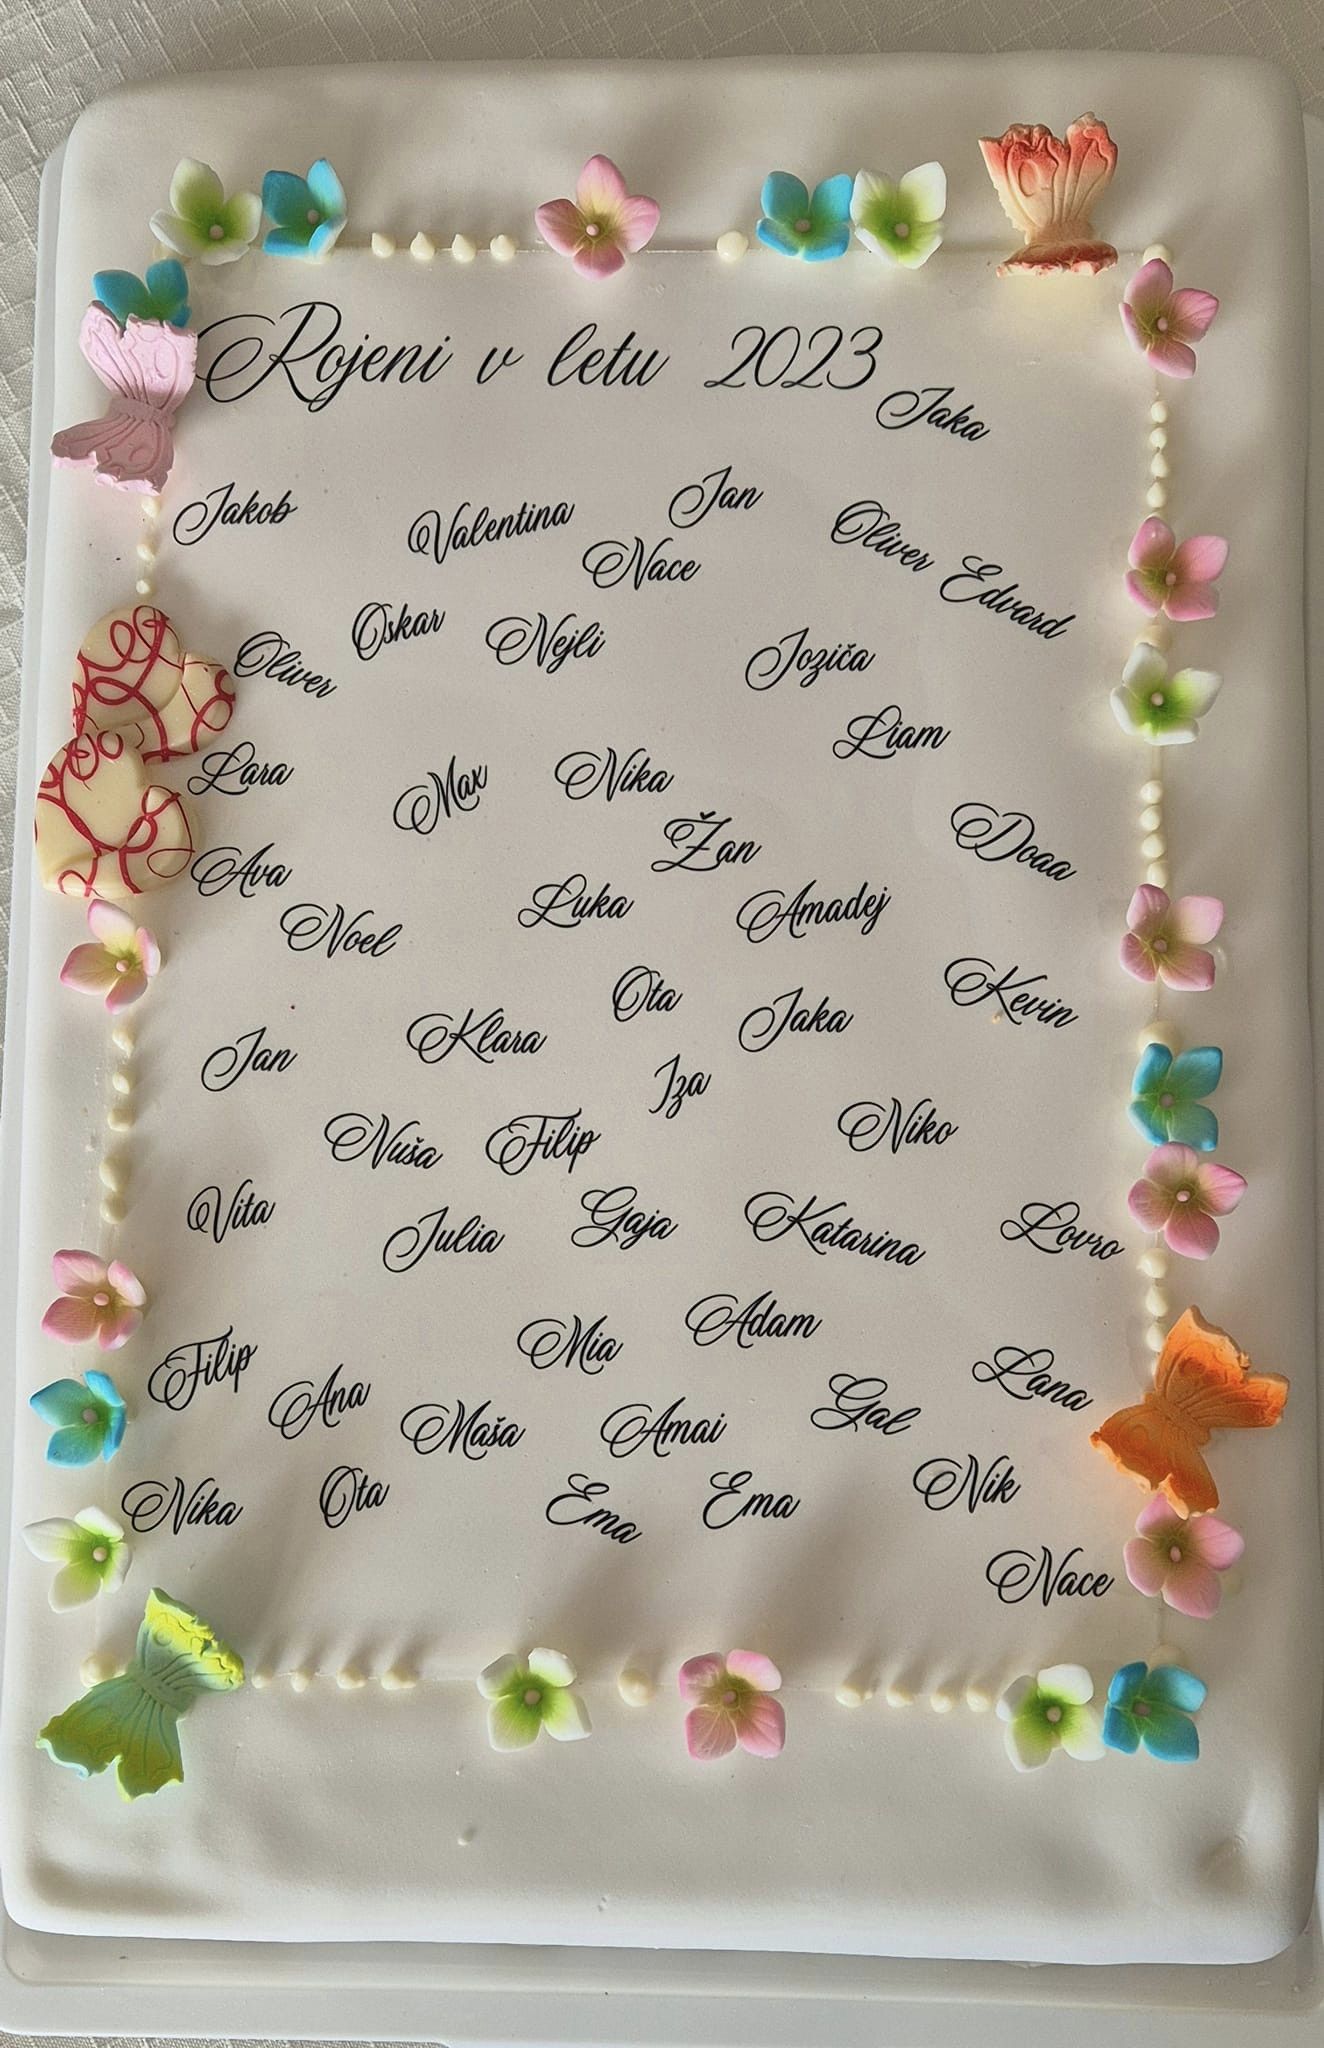 Rojeni v letu 2023
Jaka
Jakob
Valentina
Jan
Nace
Oliver Edvard
Oskar
Nejli
Oliver
Joziča
Liam
Lara
Max
Nika
Žan
Doaa
Ava
Luka
Amadej
Noel
Ota
Kevin
Jaka
Klara
Jan
Iza
Niko
Nuša
Filip
Vita
Gaja
Julia
Katarina
Lovro
Adam
Mia
Filip
Lana
Ana
Gal
Maša
Amai
Nik
Nika
Ota
Ema
Ema
Nace